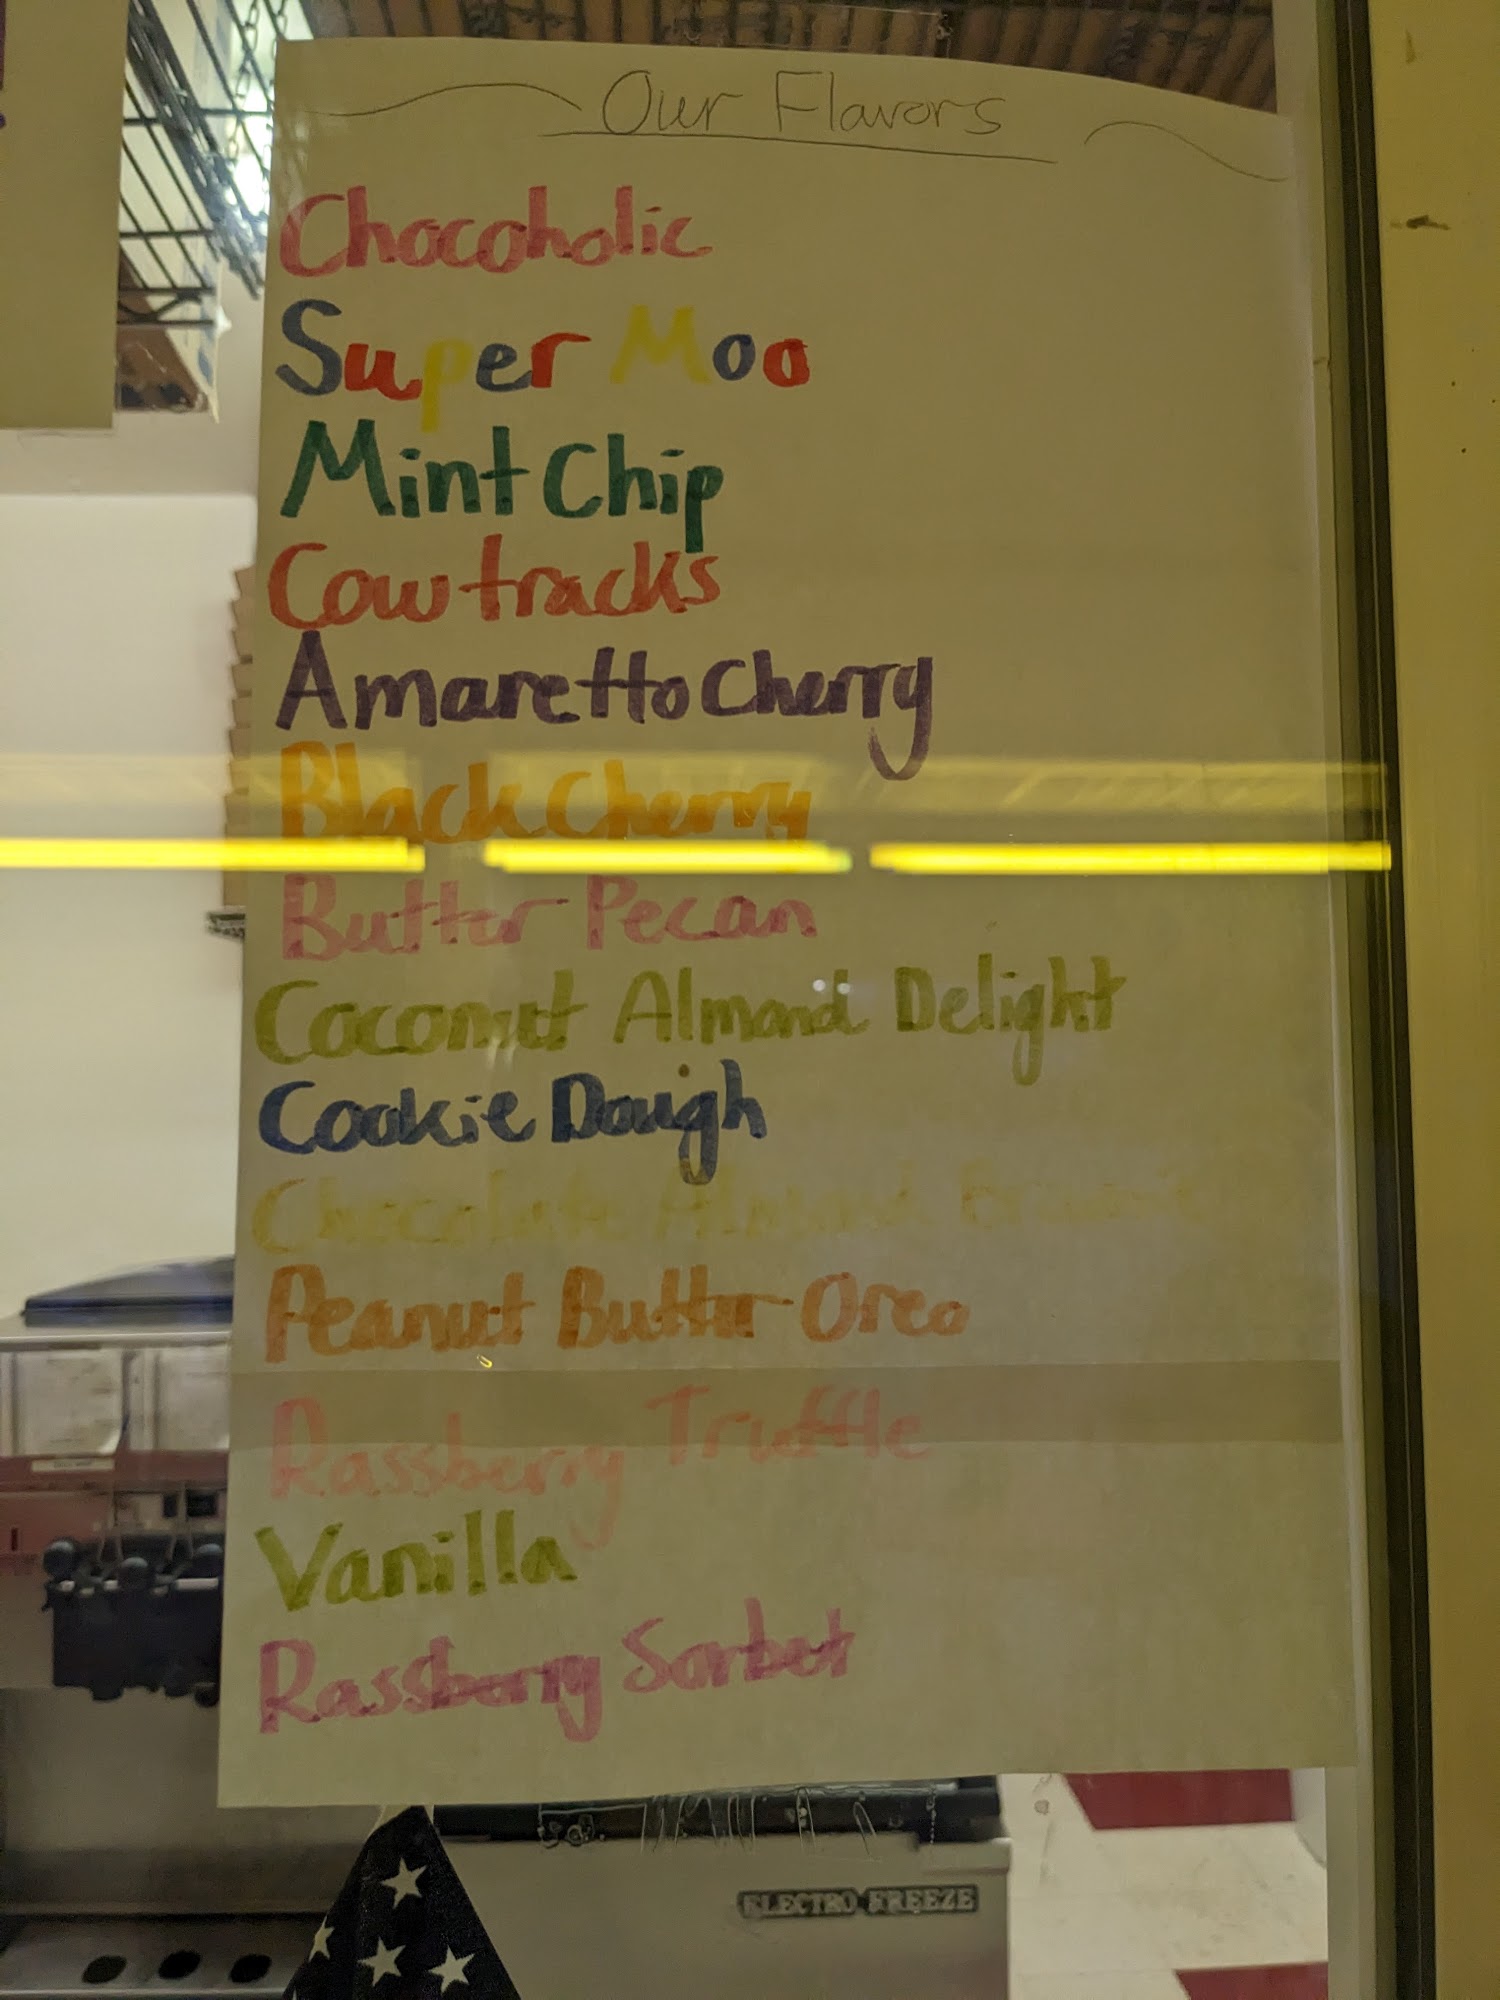 Our Flavors
Chocoholic
Super Moo
Mint Chip
Cow tracks
Amaretto Cherry
Black Cherry
Butter Pecan
Coconut Almond Delight
Cookie Dough
Chocolate Almond
Peanut Butter Oreo
Rassberry Truffle
Vanilla
Rassberry Sorbet
ELECTRO FREEZE